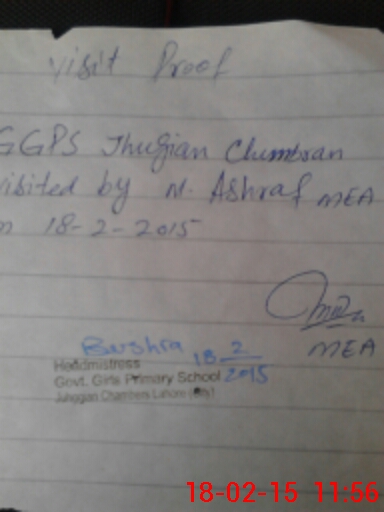 Visit Proof
GGPS Jhugian Chumbran
visited by M. Ashraf MEA
on 18-2-2015
MEA
Bushra 18 2
2015
Headmistress
Govt. Girls Primary School
Juhggian Chambers Lahore (City)
18-02-15 11:56